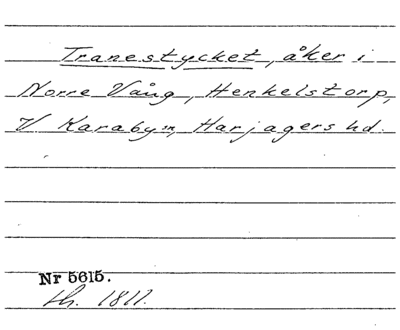 Tranestycket, åker i
Norre Vång, Henkelstorp,
V Karaby sn, Harjagers hd.
Nr 5615.
th. 1811.